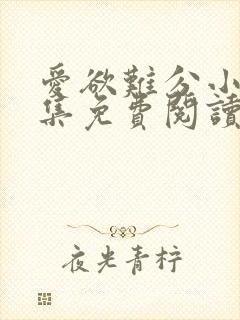 愛欲難分小
集免費閱讀
夜光青柠